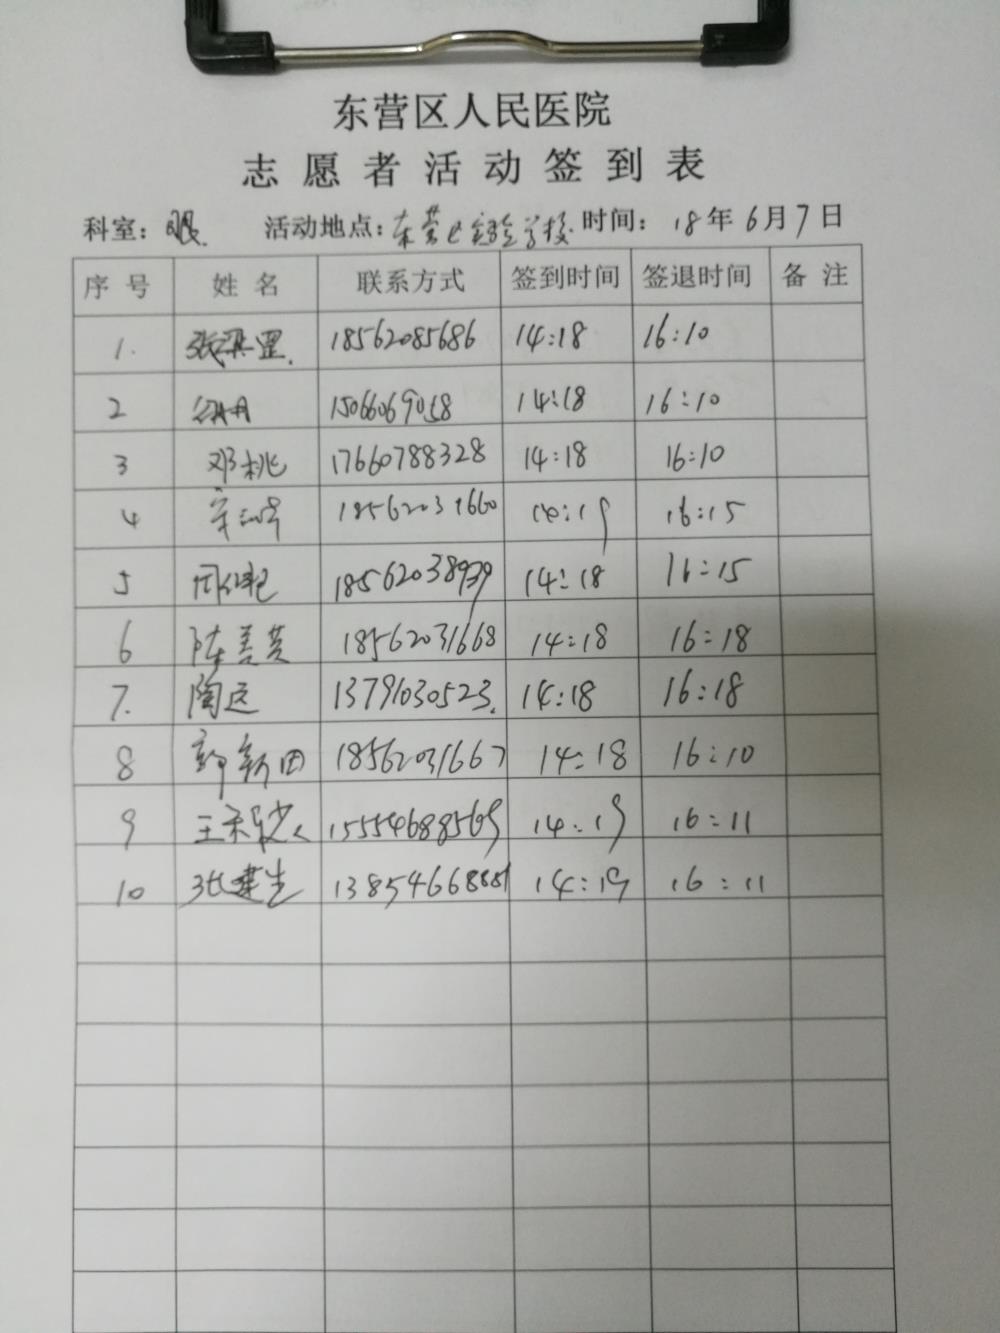 东营区人民医院
志愿者活动签到表
科室：眼 活动地点：东营区实验学校 时间：18年6月7日
序号 姓名 联系方式 签到时间 签退时间 备注
1. 18562085686 14:18 16:10
2 15066069058 14:18 16:10
3 邓桃 17660788328 14:18 16:10
4 18562031660 14:19 16:15
5 18562038939 14:18 16:15
6 陈美英 18562031668 14:18 16:18
7. 陶远 13791030523. 14:18 16:18
8 郭新田 18562031667 14:18 16:10
9 15554688569 14:19 16:11
10 张建生 14:19 16:11